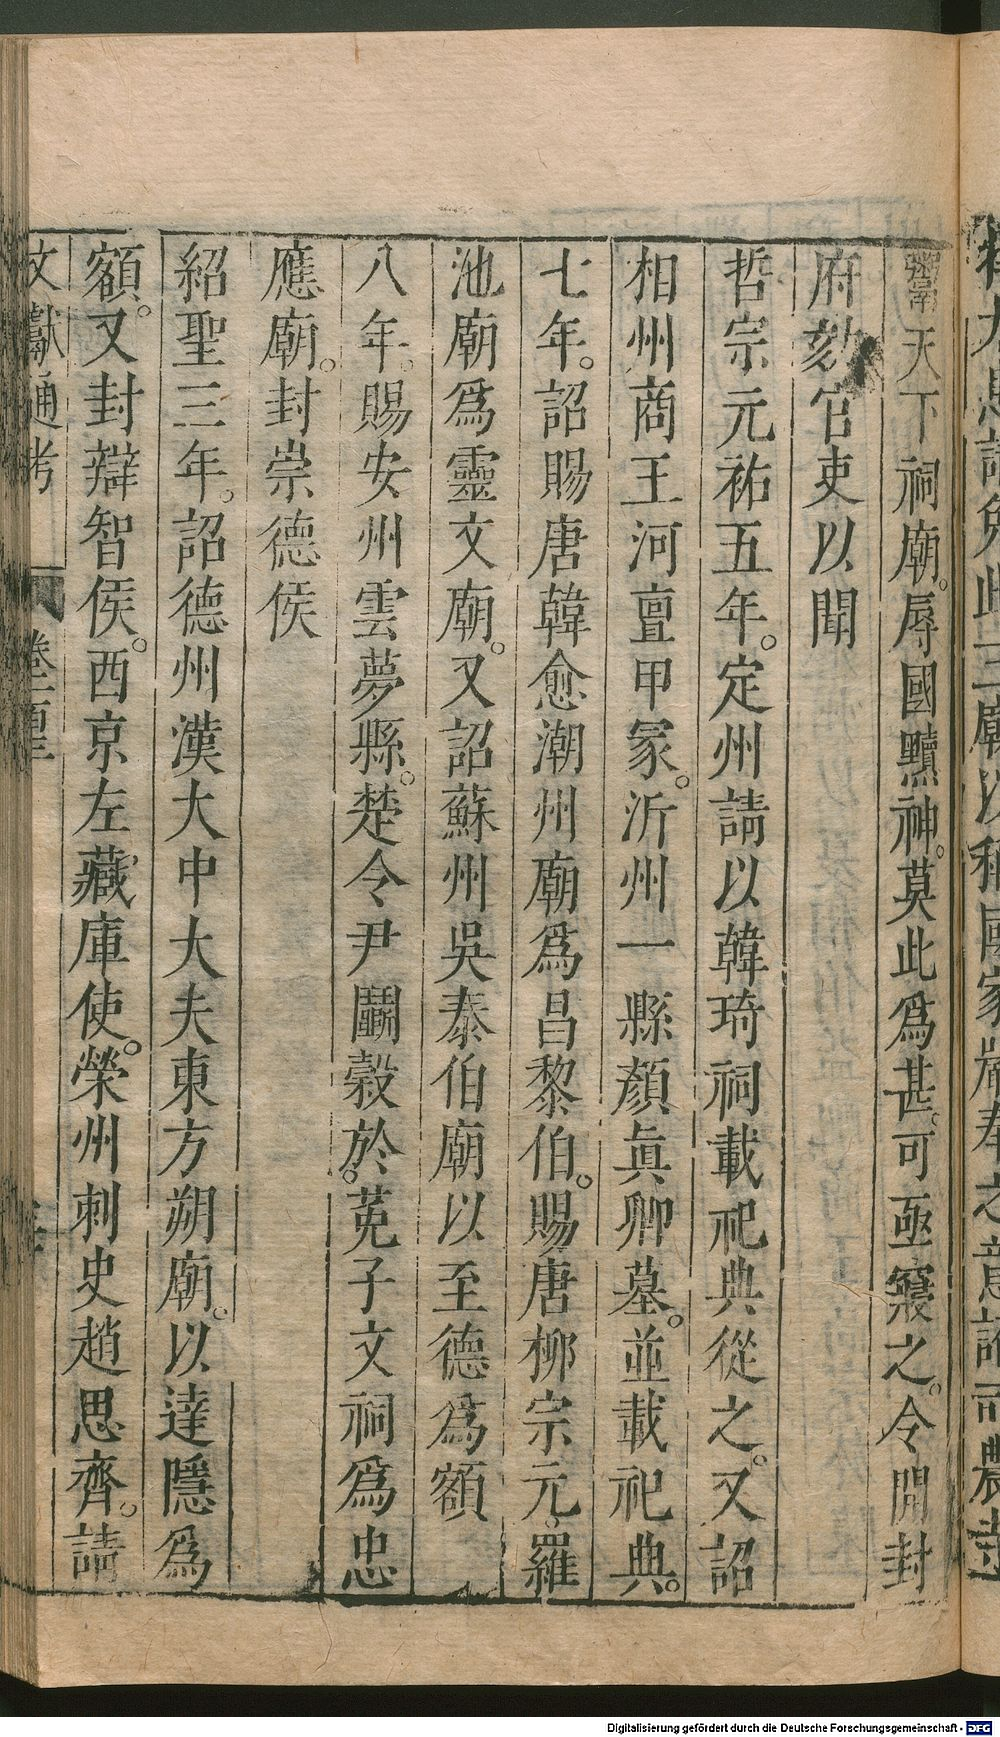 鬻天下祠廟。辱國黷神。莫此爲甚。可亟寢之。令開封
府劾官吏以聞
哲宗元祐五年。定州請以韓琦祠載祀典從之。又詔
相州商王河亶甲冢。沂州一縣顏眞卿墓。並載祀典。
七年。詔賜唐韓愈潮州廟爲昌黎伯。賜唐柳宗元。羅
池廟爲靈文廟。又詔蘇州吳泰伯廟以至德爲額
八年。賜安州雲夢縣。楚令尹鬭穀於。菟子文祠爲忠
應廟。封崇德侯
紹聖三年。詔德州漢大中大夫東方朔廟。以達隱爲
額。又封辯智侯。西京左藏庫使。榮州刺史趙思齊。請
文獻通考 卷一百三
Digitalisierung gefördert durch die Deutsche Forschungsgemeinschaft - DFG